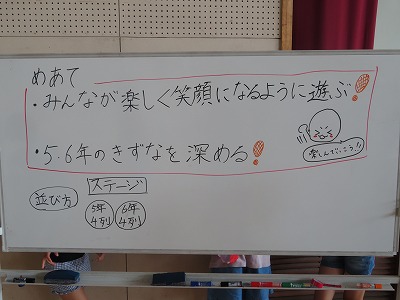 めあて
・みんなが楽しく笑顔になるように遊ぶ!
・5.6年のきずなを深める!
楽しんでいこう!!
並び方
ステージ
5年
4列
6年
4列